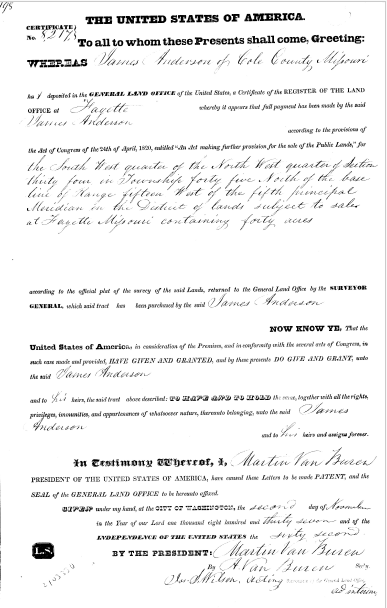 THE UNITED STATES OF AMERICA.
CERTIFICATE
No.
To all to whom these Presents shall come, Greeting:
WHEREAS James Anderson of Cole County, Missouri
ha s deposited in the GENERAL LAND OFFICE of the United States, a Certificate of the REGISTER OF THE LAND
OFFICE at Fayette whereby it appears that full payment has been made by the said
James Anderson
according to the provisions of
the Act of Congress of the 24th of April, 1820, entitled "An Act making further provision for the sale of the Public Lands," for
the South West quarter of the North West quarter of Section
thirty four in Township forty five North of the base
line of Range fifteen West of the fifth principal
Meridian in the District of lands subject to sale
at Fayette Missouri containing forty acres
according to the official plat of the survey of the said Lands, returned to the General Land Office by the SURVEYOR
GENERAL, which said tract has been purchased by the said James Anderson
NOW KNOW YE, That the
United States of America, in consideration of the Premises, and in conformity with the several acts of Congress, in
such case made and provided, HAVE GIVEN AND GRANTED, and by these presents DO GIVE AND GRANT, unto
the said James Anderson
and to his heirs, the said tract above described: TO HAVE AND TO HOLD the same, together with all the rights,
privileges, immunities, and appurtenances of whatsoever nature, thereunto belonging, unto the said James
Anderson
and to his heirs and assigns forever.
In Testimony Whereof, I, Martin Van Buren
PRESIDENT OF THE UNITED STATES OF AMERICA, have caused these Letters to be made PATENT, and the
SEAL of the GENERAL LAND OFFICE to be hereunto affixed.
GIVEN under my hand, at the CITY OF WASHINGTON, the second day of November
in the Year of our Lord one thousand eight hundred and thirty seven and of the
INDEPENDENCE OF THE UNITED STATES the sixty second
L.S.
BY THE PRESIDENT: Martin Van Buren
By A. Van Buren Sec'y.
Jno. S. Wilson, acting
ad interim